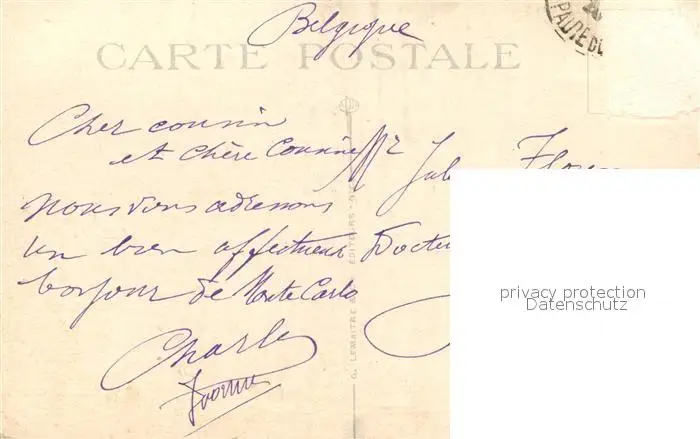 Belgique
CARTE POSTALE
Cher cousin
et chère Cousine
Nous vous adressons
un bien affectueux
bonjour de Monte Carlo
Charles
Yvonne
Mr
Docteu
G. LEMAITRE ÉDITEURS
privacy protection
Datenschutz